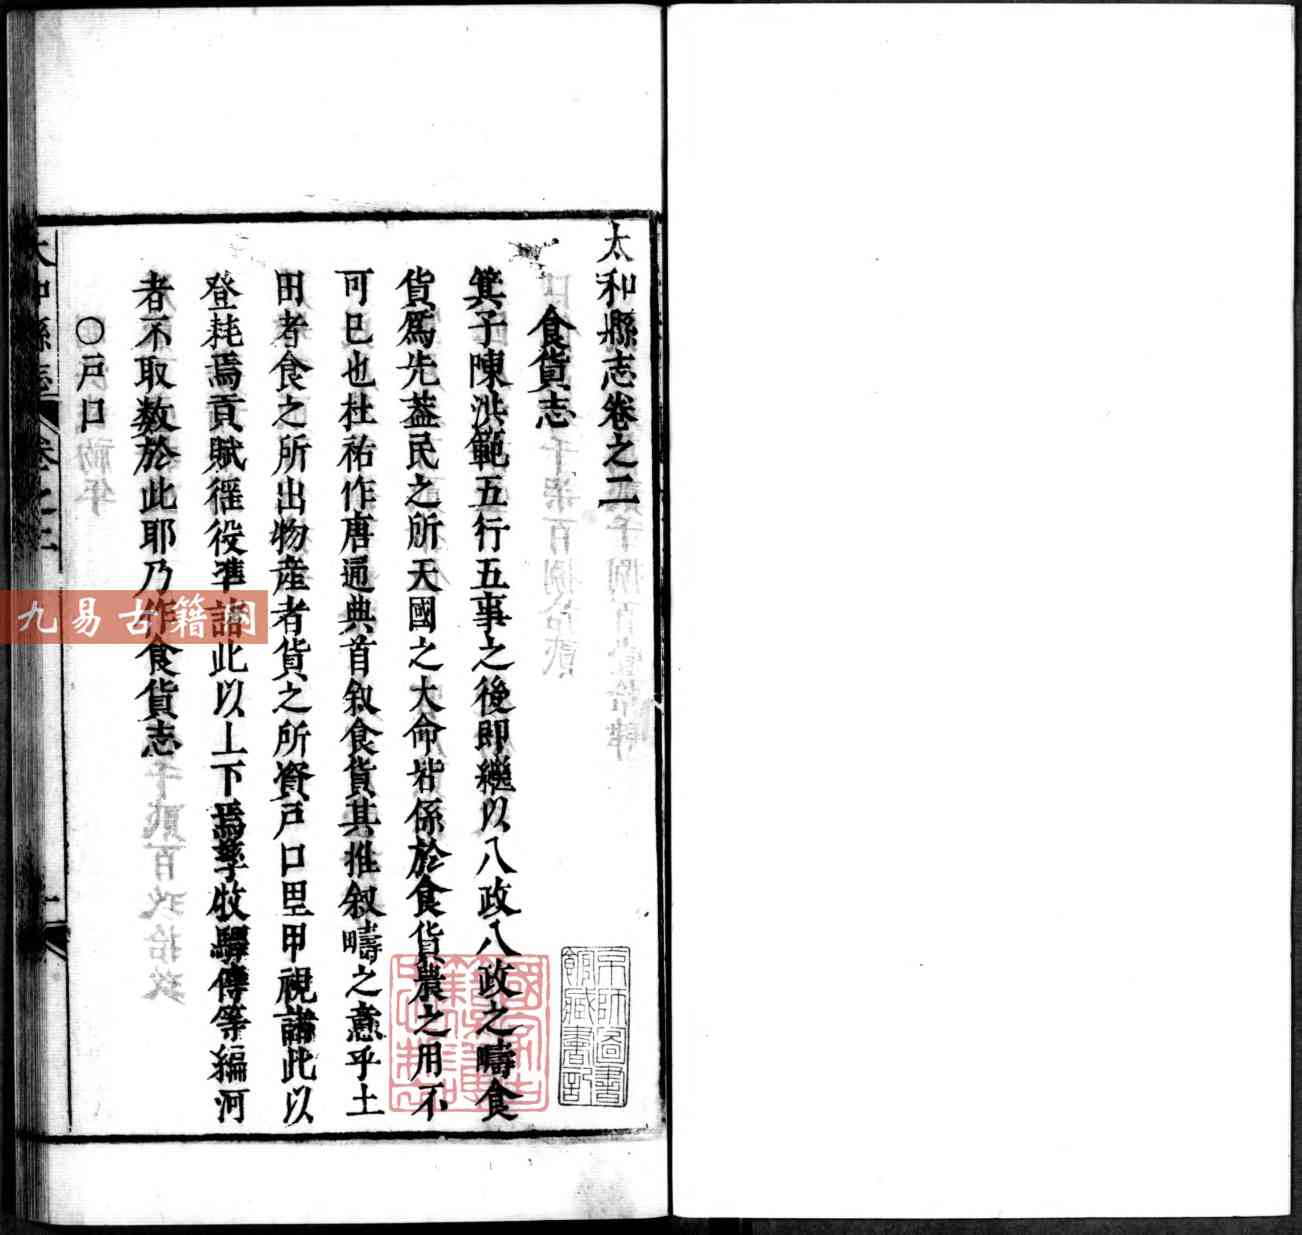 太和縣志卷之二
食貨志
箕子陳洪範五行五事之後即繼以八政八政之疇食
貨爲先蓋民之所天國之大命皆係於食貨農之用不
可已也杜祐作唐通典首叙食貨其推叙疇之意乎土
田者食之所出物産者貨之所資戸口里甲視諸此以
登耗焉貢賦徭役準諸此以上下焉孳牧驛傳等編河
者不取数於此耶乃作食貨志
○戸口
太和縣志
卷之二
一
京師圖書
館藏書記
九易古籍网